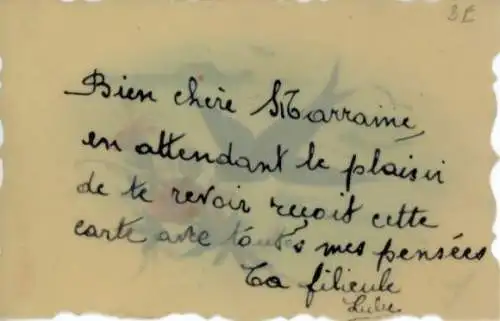 Bien chère Marraine,
en attendant le plaisir
de te revoir reçoit cette
carte avec toutes mes pensées
Ta filieule